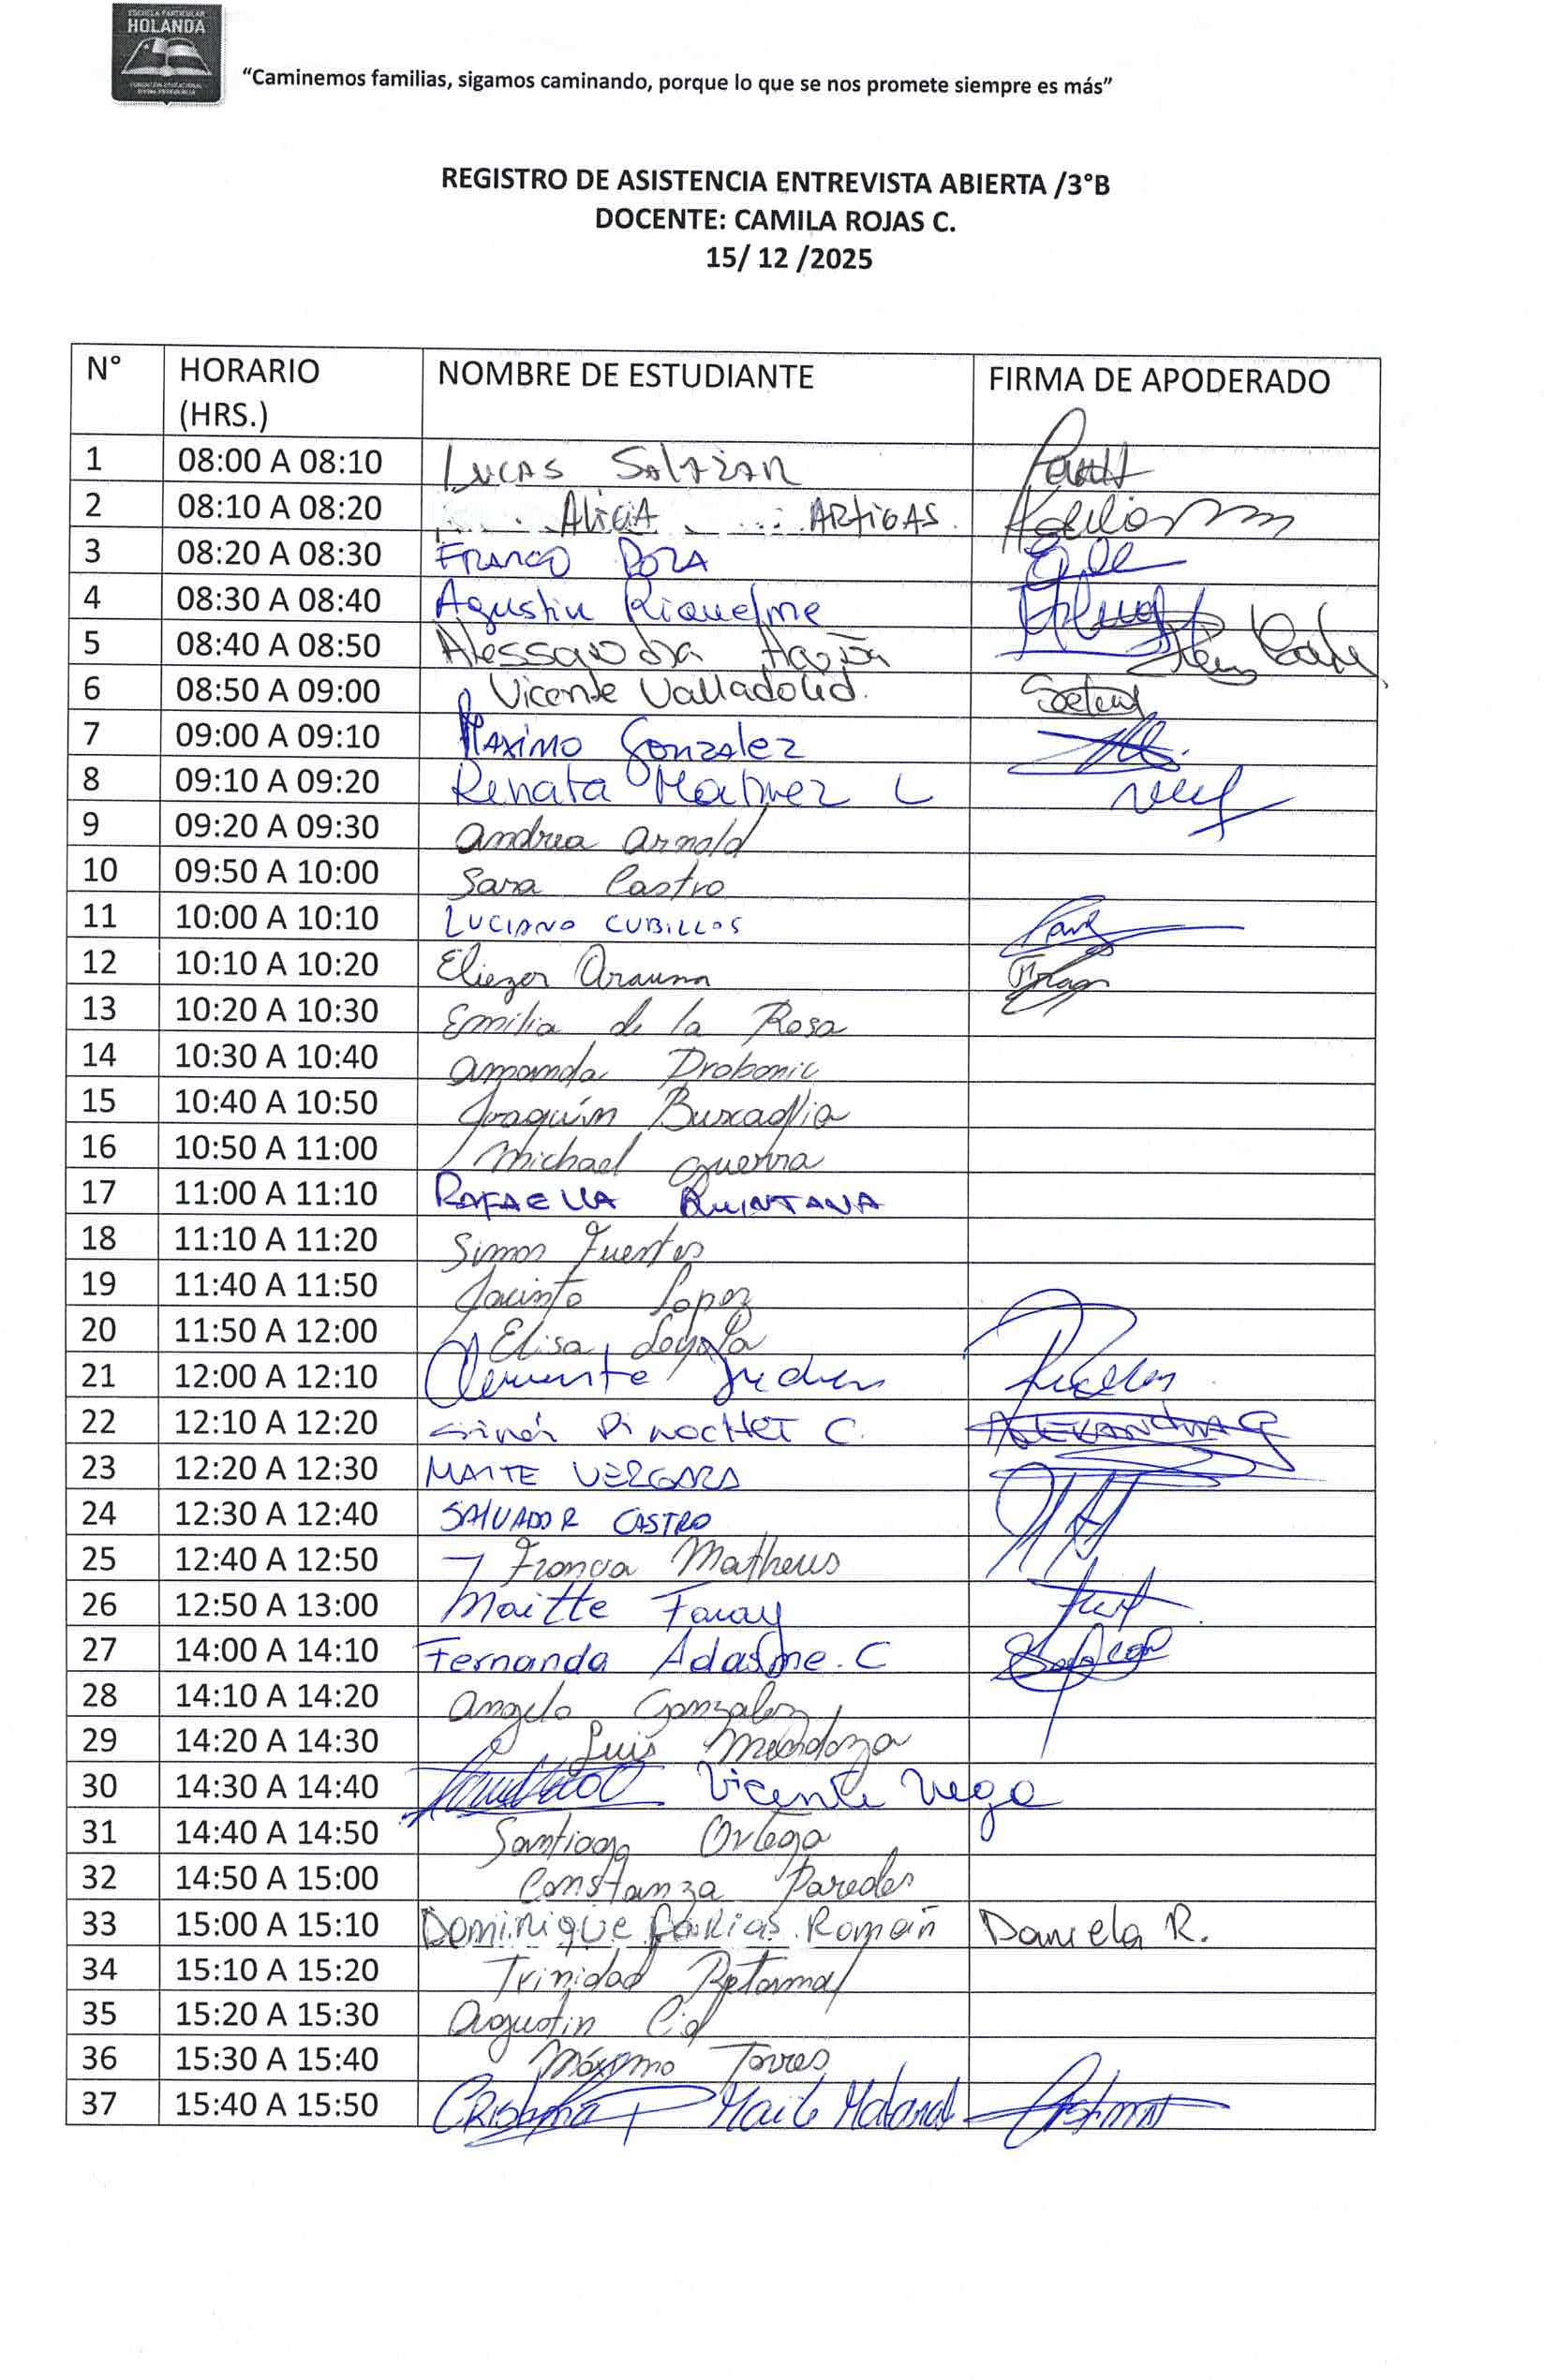 ESCUELA PARTICULAR
HOLANDA
"Caminemos familias, sigamos caminando, porque lo que se nos promete siempre es más"
REGISTRO DE ASISTENCIA ENTREVISTA ABIERTA /3°B
DOCENTE: CAMILA ROJAS C.
15/ 12 /2025
N° HORARIO (HRS.) NOMBRE DE ESTUDIANTE FIRMA DE APODERADO
1 08:00 A 08:10 LUCAS SALAZAR
2 08:10 A 08:20 Alicia ARtiGAS
3 08:20 A 08:30 FRANCO POZA
4 08:30 A 08:40 Agustin Riquelme
5 08:40 A 08:50 Alessandra
6 08:50 A 09:00 Vicente Valladolid.
7 09:00 A 09:10 MAXIMO Gonzalez
8 09:10 A 09:20 Renata Martinez L
9 09:20 A 09:30 Andrea Arnold
10 09:50 A 10:00 Sara Castro
11 10:00 A 10:10 LUCIANO CUBILLOS
12 10:10 A 10:20 Eliezer Arauna
13 10:20 A 10:30 Emilia de la Rosa
14 10:30 A 10:40 Amanda Drobonic
15 10:40 A 10:50 Joaquín Buscaglia
16 10:50 A 11:00 Michael Guerra
17 11:00 A 11:10 RAFAELLA QUINTANA
18 11:10 A 11:20 Simon Fuentes
19 11:40 A 11:50 Jacinto Lopez
20 11:50 A 12:00 Elisa Loyola
21 12:00 A 12:10 Clemente
22 12:10 A 12:20 PiNOCHET C. ALEXANDRA G
23 12:20 A 12:30 MAITE VERGARA
24 12:30 A 12:40 SALVADOR CASTRO
25 12:40 A 12:50 Franca Matheus
26 12:50 A 13:00 Maitte Faray
27 14:00 A 14:10 Fernanda Adasme. C
28 14:10 A 14:20 Angelo Gonzalez
29 14:20 A 14:30 Luis Mendoza
30 14:30 A 14:40 Vicente Vega
31 14:40 A 14:50 Santiago Ortega
32 14:50 A 15:00 Constanza Paredes
33 15:00 A 15:10 Dominique Farias Román Daniela R.
34 15:10 A 15:20 Trinidad Retamal
35 15:20 A 15:30 Agustin Cid
36 15:30 A 15:40 Máximo Torres
37 15:40 A 15:50 Maite